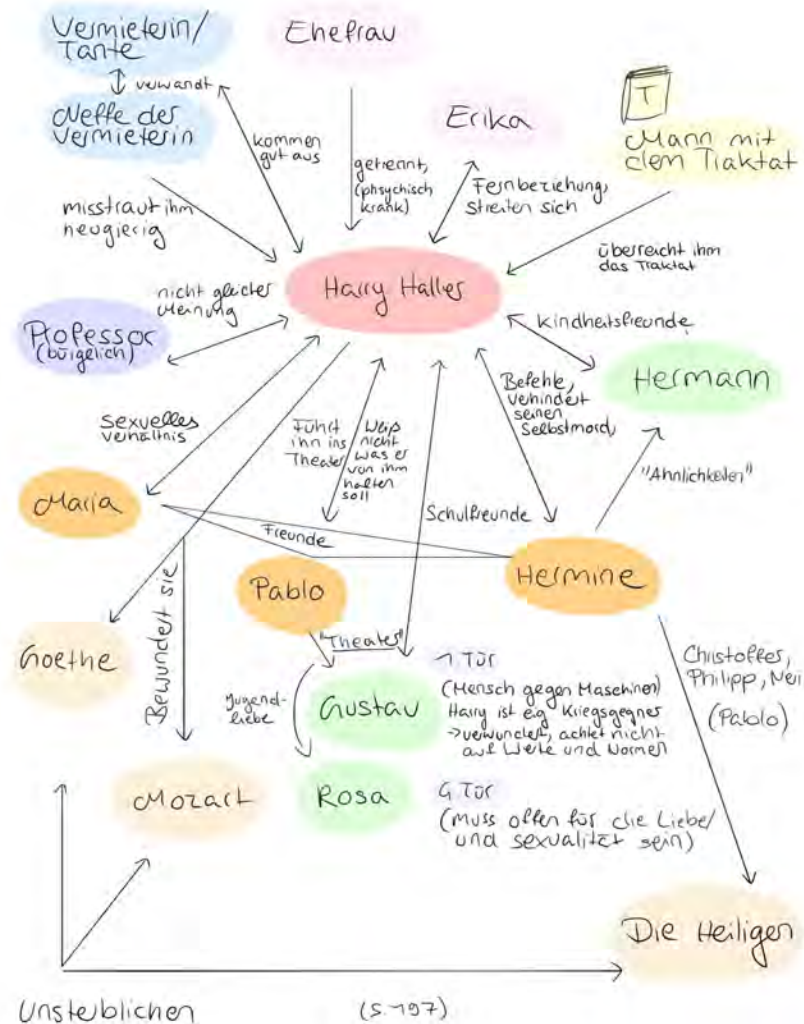 Vermieterin/
Tante
verwandt
Neffe der
Vermieterin
Ehefrau
Erika
T
Mann mit
dem Traktat
kommen
gut aus
getrennt,
(phsychisch
krank)
Fernbeziehung,
streiten sich
misstraut ihm
neugierig
überreicht ihm
das Traktat
nicht gleicher
Meinung
Harry Haller
Kindheitsfreunde
Professor
(bürgelich)
Hermann
sexuelles
verhältnis
Führt
ihn ins
Theater
Weiß
nicht
was er
von ihm
halten
soll
Befehle,
vehindert
seinen
Selbstmord,
"Ähnlichkeiten"
Maria
Freunde
Schulfreunde
Pablo
Hermine
Bewundert sie
Goethe
"Theater"
1. Tür
Jugend-
liebe
Gustav
(Mensch gegen Maschinen)
Harry ist eig Kriegsgegner
→ verwundert, achtet nicht
auf Werte und Normen
Christoffer,
Philipp, Neri
(Pablo)
Mozart
Rosa
4. Tür
(muss offen für die Liebe/
und sexualität sein)
Die Heiligen
Unsterblichen
(S. 197)